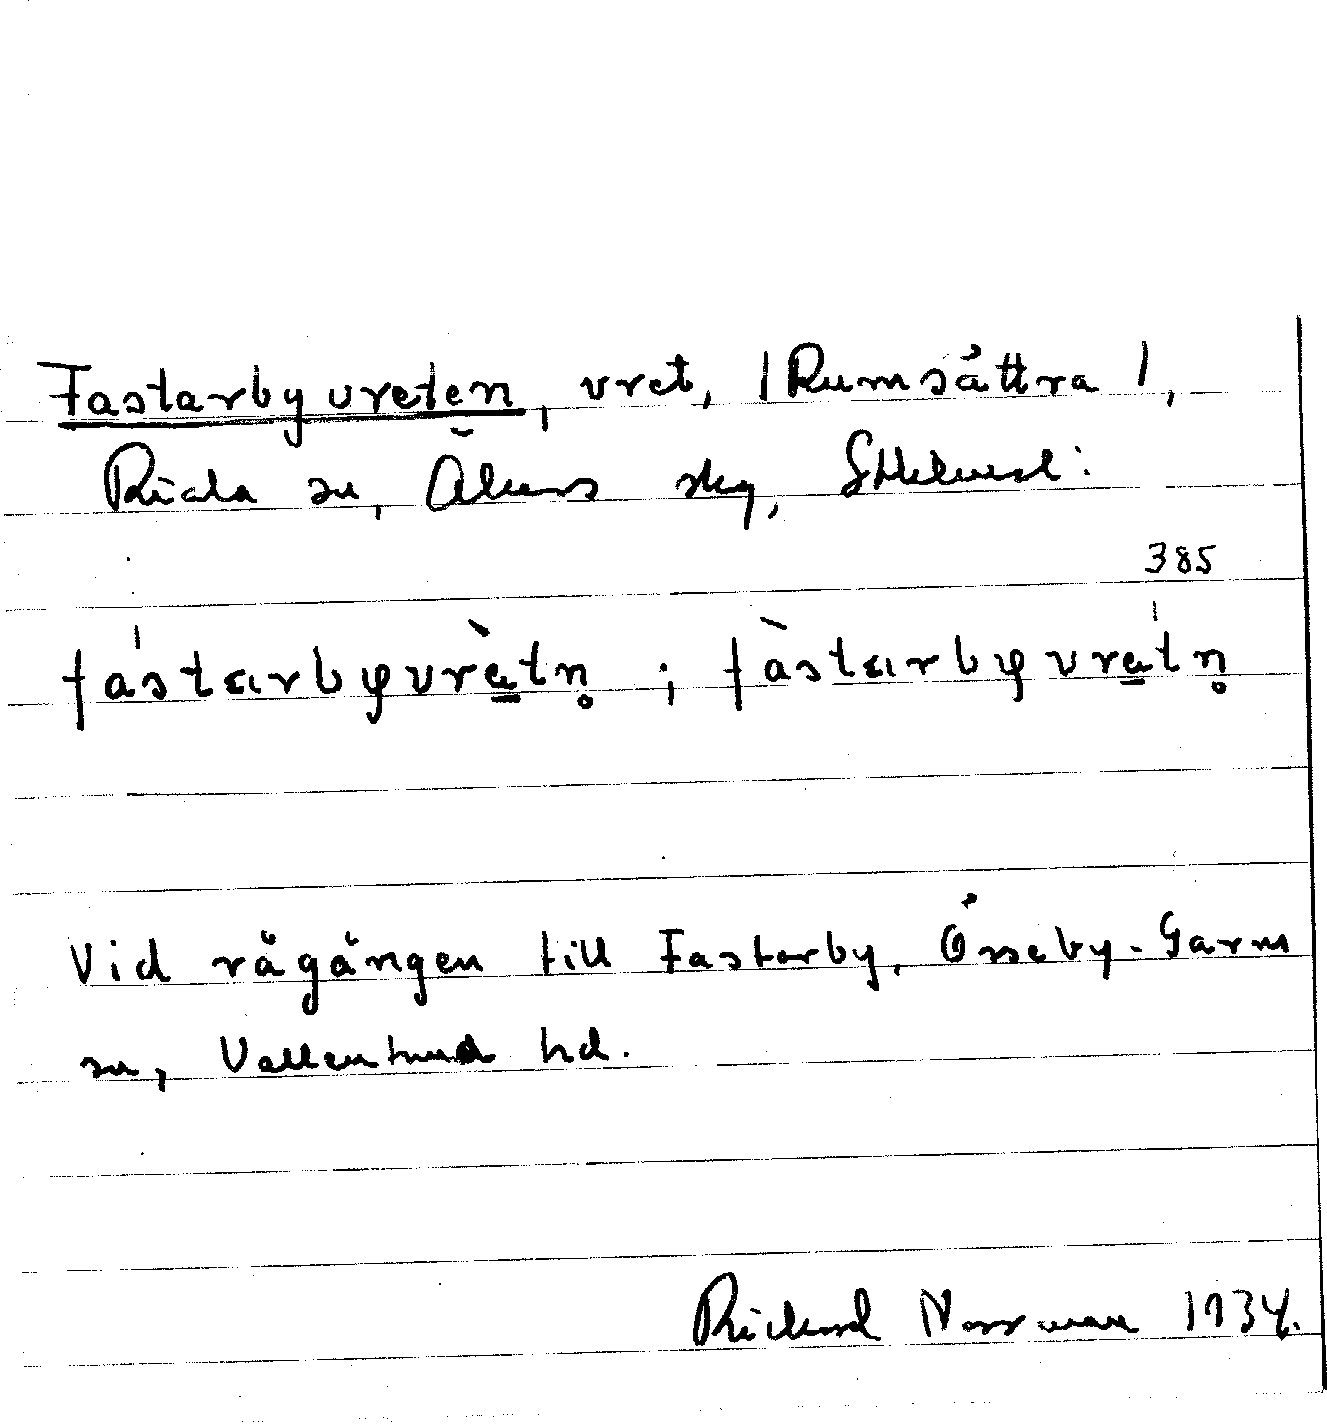 Fastarbyvreten, vret, /Rumsättra/,
Riala sn, Åkers skg, Sthlms l:
385
fástarbyvrètn̥ ; fàstarbyvrétn̥
Vid rågången till Fastarby, Össeby-Garn
sn, Vallentuna hd.
Rickard Norrman 1934.